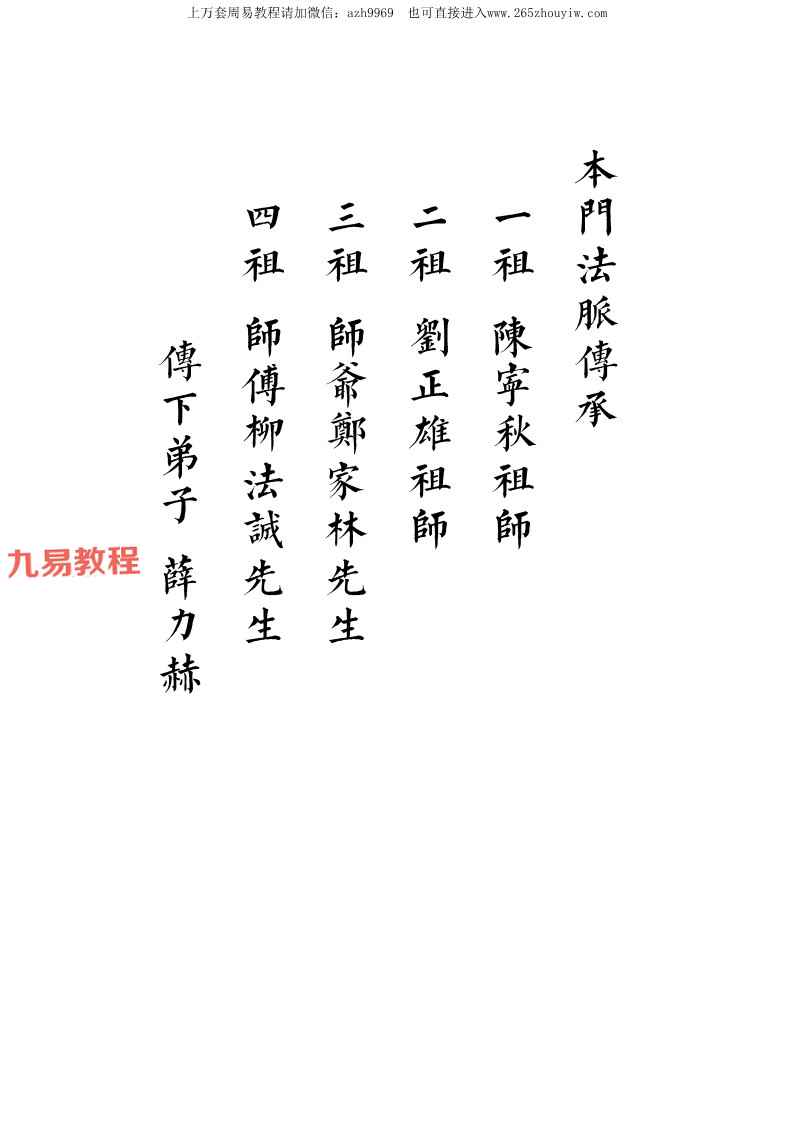 上万套周易教程请加微信：azh9969　也可直接进入www.265zhouyiw.com
本門法脈傳承
一祖 陳寧秋祖師
二祖 劉正雄祖師
三祖 師爺鄭家林先生
四祖 師傅柳法誠先生
傳下弟子 薛力赫
九易教程